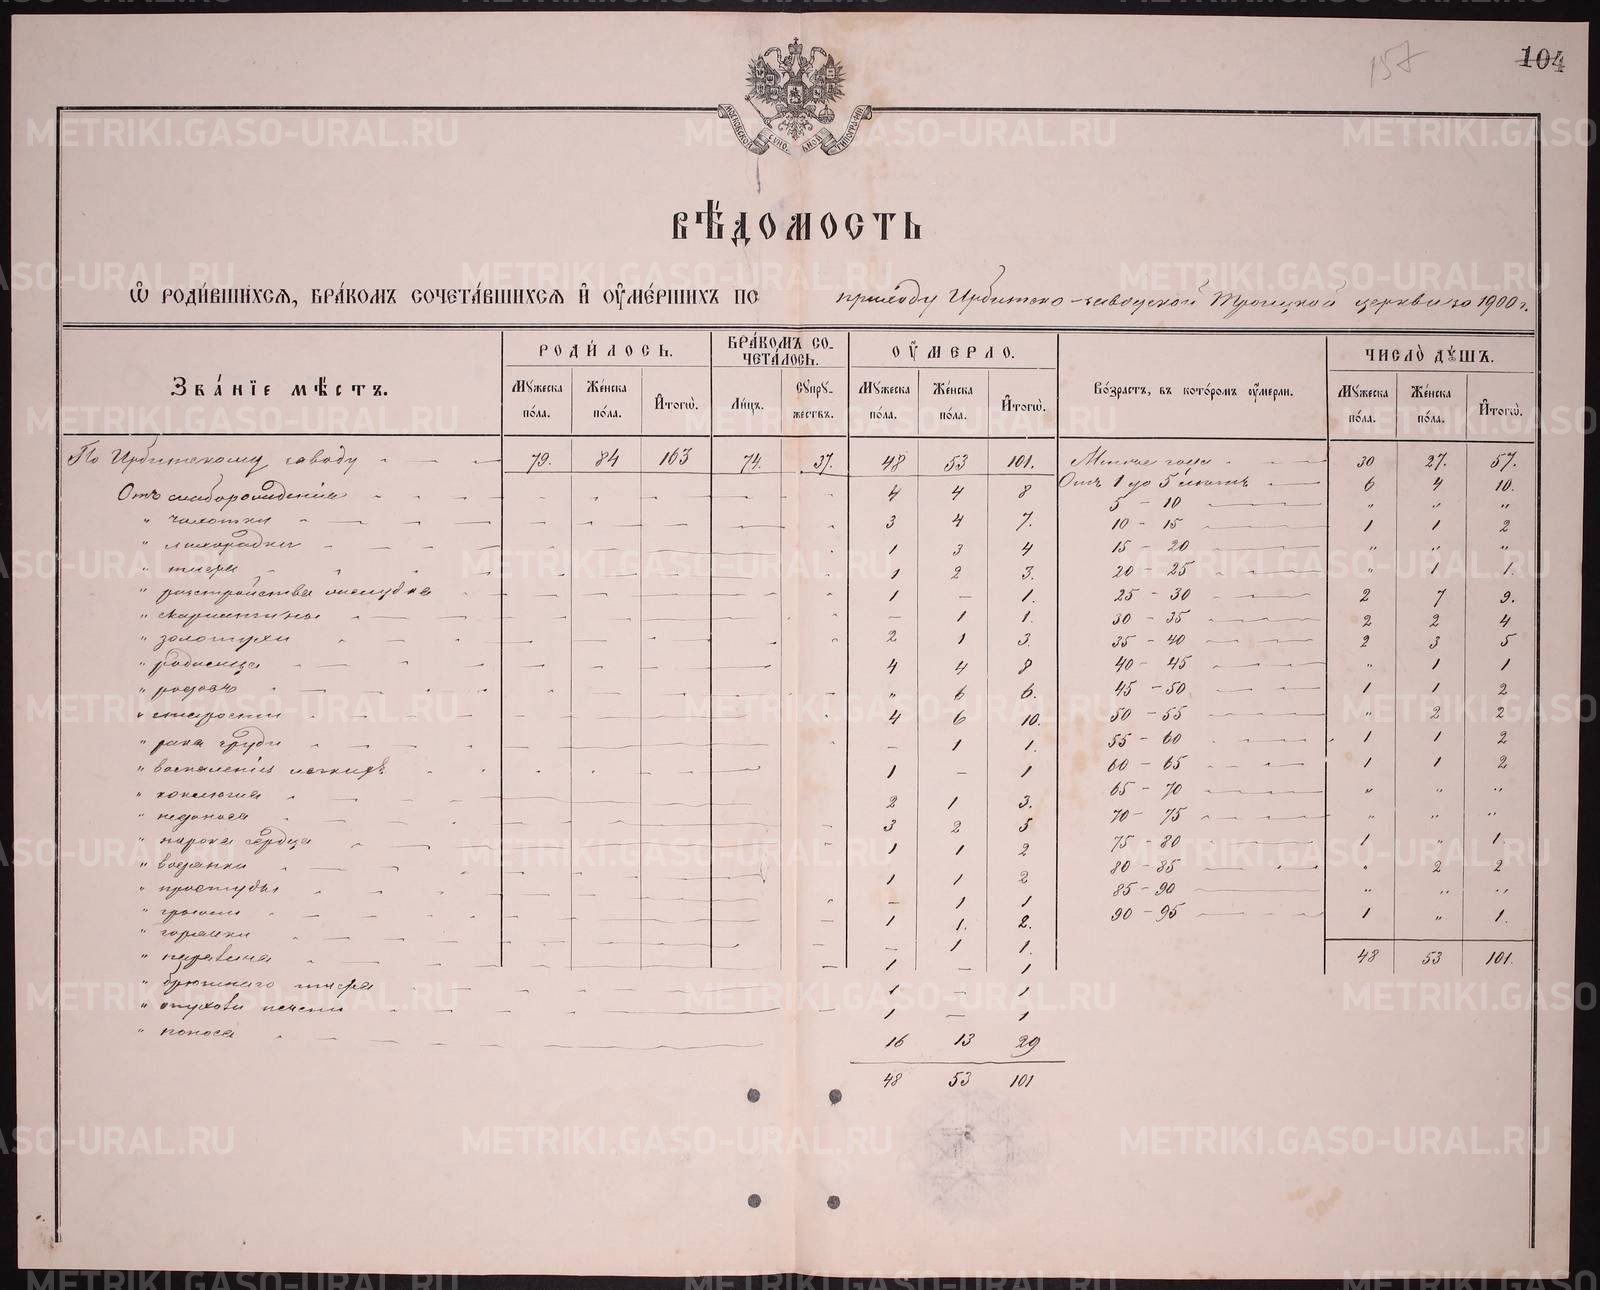 157
104
МОСКОВСКОЙ СѴНОДАЛЬНОЙ ТИПОГРАФІИ
ВѢДОМОСТЬ
Ѡ РОДИВШИХСЯ, БРАКОМЪ СОЧЕТАВШИХСЯ И ОУМЕРШИХЪ ПО приходу Ирбитско-заводской Троицкой церкви за 1900 г.
Званіе мѣстъ. РОДИЛОСЬ. БРАКОМЪ СОЧЕТАЛОСЬ. ОУМЕРЛО. Возрастъ, въ которомъ оумерли. ЧИСЛО ДУШЪ.
Мужеска пола. Женска пола. Итогѡ. Лицъ. Супружествъ. Мужеска пола. Женска пола. Итогѡ. Мужеска пола. Женска пола. Итогѡ.
По Ирбитскому заводу 79. 84 163 74. 37. 48 53 101. Менее года 30 27. 57.
Отъ слаборождения 4 4 8 Отъ 1 до 5 летъ 6 4 10.
" чахотки 3 4 7. 5 - 10 " " "
" лихорадки 1 3 4 10 - 15 1 1 2
" тифа 1 2 3. 15 - 20 " " "
" разстройства желудка 1 — 1. 20 - 25 " 1 1.
" скарлатины — 1 1. 25 - 30 2 7 9.
" золотухи 2 1 3. 30 - 35 2 2 4
" родимца 4 4 8 35 - 40 2 3 5
" родовъ " 6 6. 40 - 45 " 1 1
" старости 4 6 10. 45 - 50 1 1 2
" рака груди — 1 1. 50 - 55 " 2 2
" воспаления легкихъ 1 — 1 55 - 60 1 1 2
" коклюша 2 1 3. 60 - 65 1 1 2
" недоноса 3 2 5 65 - 70 " " "
" порока сердца 1 1 2 70 - 75 " " "
" водянки 1 1 2 75 - 80 1 " 1.
" простуды — 1 1 80 - 85 " 2 2
" 1 1. 2. 85 - 90 " " "
" горячки — 1 1. 90 - 95 1 " 1.
" 1 — 1 48 53 101.
" брюшного тифа 1 — 1
" опухоли печени 1 — 1
" поноса 16 13 29
48 53 101
METRIKI.GASO-URAL.RU